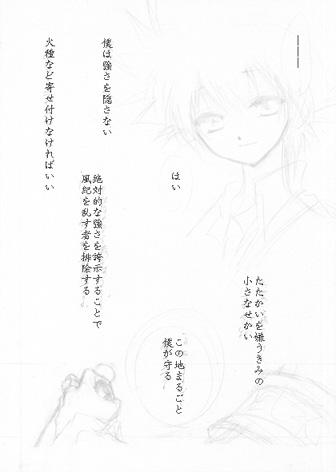 ――――
はい
僕は強さを隠さない
火種など寄せ付けなければいい
絶対的な強さを誇示することで
風紀を乱す者を排除する
たたかいを嫌うきみの
小さなせかい
この地まるごと
僕が守る